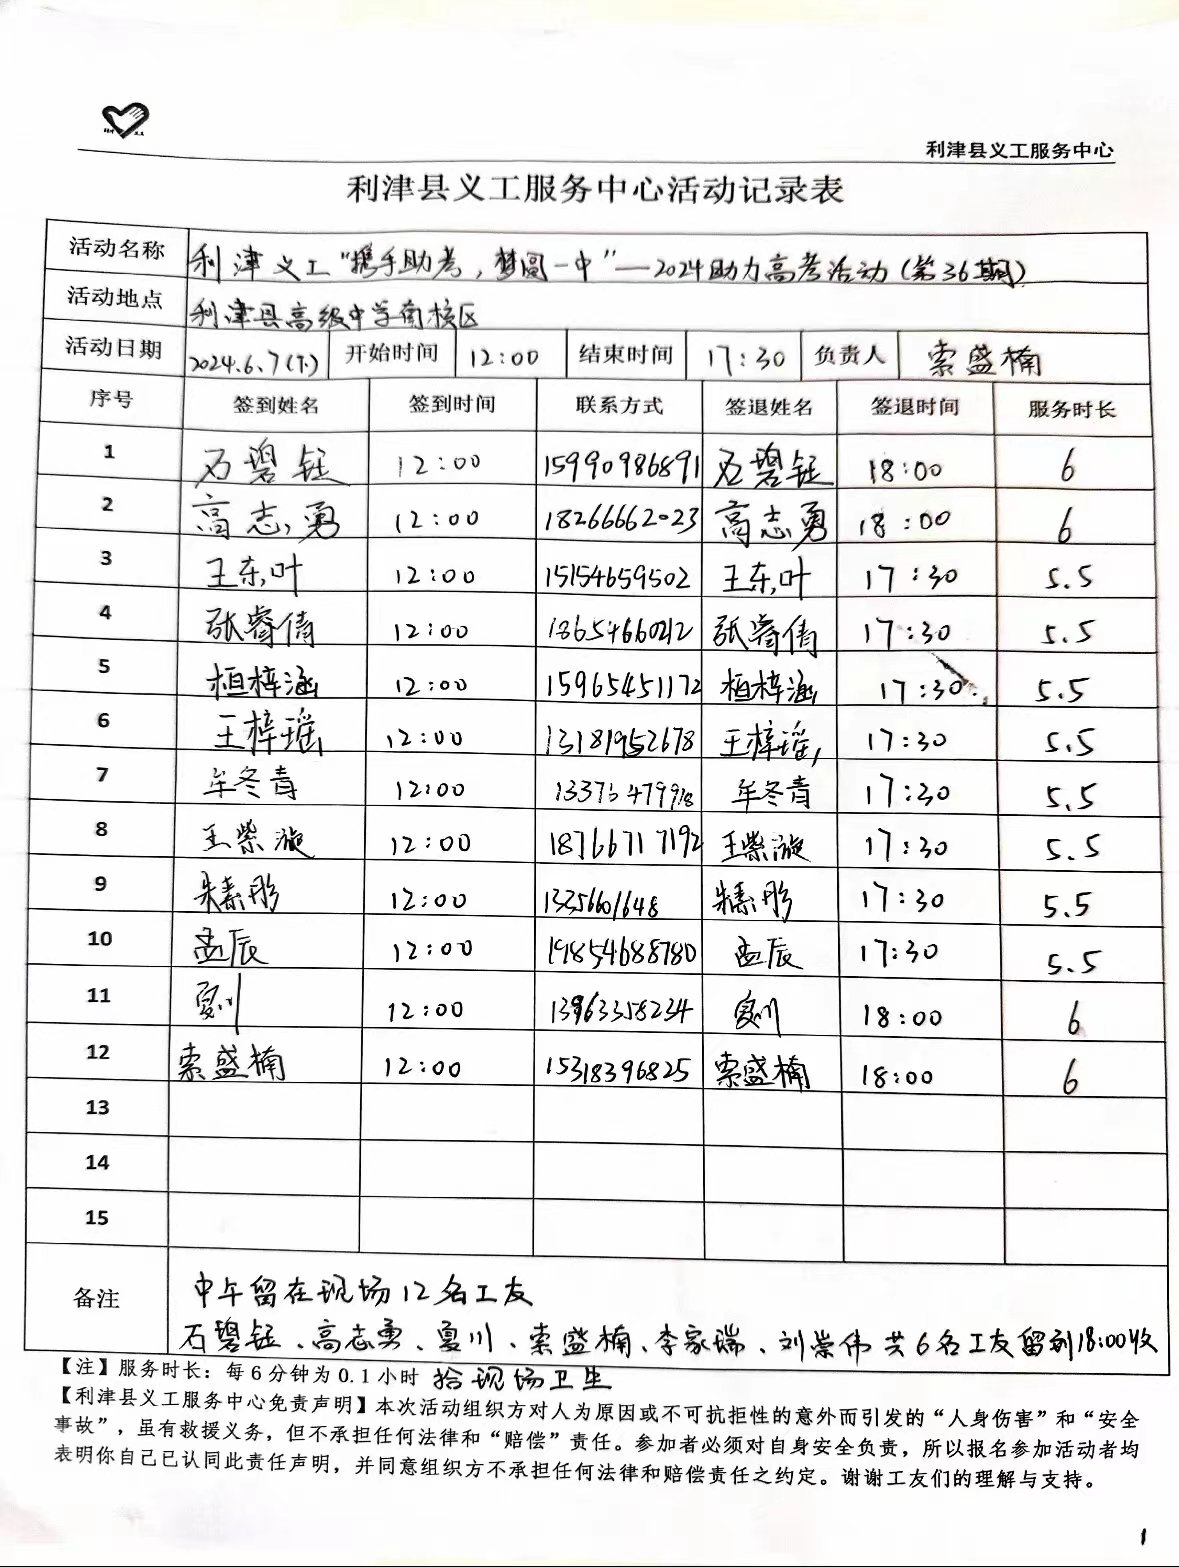 利津县义工服务中心
利津县义工服务中心活动记录表
活动名称 利津义工“携手助考，梦圆一中”—2024助力高考活动（第36期）
活动地点 利津县高级中学南校区
活动日期 2024.6.7(下) 开始时间 12:00 结束时间 17:30 负责人 索盛楠
序号 签到姓名 签到时间 联系方式 签退姓名 签退时间 服务时长
1 石碧钰 12:00 15990986891 石碧钰 18:00 6
2 高志勇 12:00 18266662023 高志勇 18:00 6
3 王东叶 12:00 15154659502 王东叶 17:30 5.5
4 张睿倩 12:00 张睿倩 17:30 5.5
5 桓梓涵 12:00 15965451172 桓梓涵 17:30 5.5
6 王梓瑶 12:00 13181952678 王梓瑶 17:30 5.5
7 牟冬青 12:00 牟冬青 17:30 5.5
8 王紫漩 12:00 18766717192 王紫漩 17:30 5.5
9 12:00 13256601648 17:30 5.5
10 孟辰 12:00 19854688780 孟辰 17:30 5.5
11 夏川 12:00 13963358234 夏川 18:00 6
12 索盛楠 12:00 15318396825 索盛楠 18:00 6
13
14
15
备注 中午留在现场12名工友
石碧钰、高志勇、夏川、索盛楠、李家瑞、刘崇伟 共6名工友留到18:00收
【注】服务时长：每6分钟为0.1小时 拾现场卫生
【利津县义工服务中心免责声明】本次活动组织方对人为原因或不可抗拒性的意外而引发的“人身伤害”和“安全
事故”，虽有救援义务，但不承担任何法律和“赔偿”责任。参加者必须对自身安全负责，所以报名参加活动者均
表明你自己已认同此责任声明，并同意组织方不承担任何法律和赔偿责任之约定。谢谢工友们的理解与支持。
1